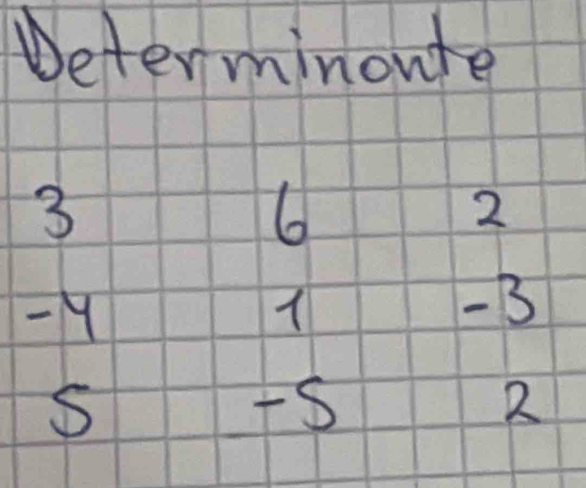 Determinante
3 6 2
-4 1 -3
5 -5 2